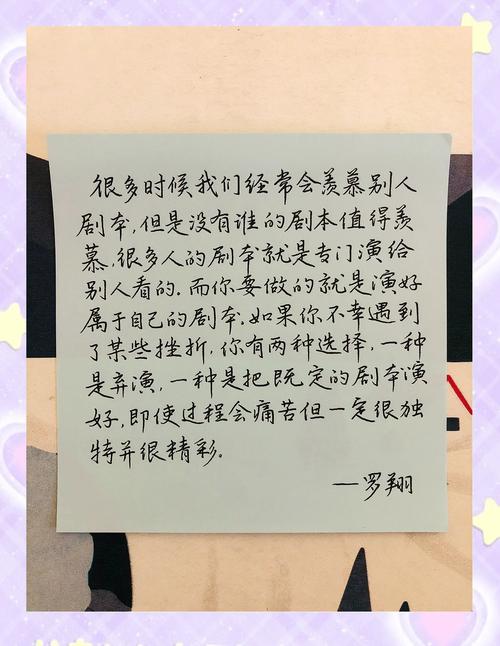 很多时候我们经常会羡慕别人
剧本,但是没有谁的剧本值得羡
慕,很多人的剧本就是专门演给
别人看的.而你要做的就是演好
属于自己的剧本.如果你不幸遇到
了某些挫折,你有两种选择,一种
是弃演,一种是把既定的剧本演
好,即使过程会痛苦但一定很独
特并很精彩.
—罗翔